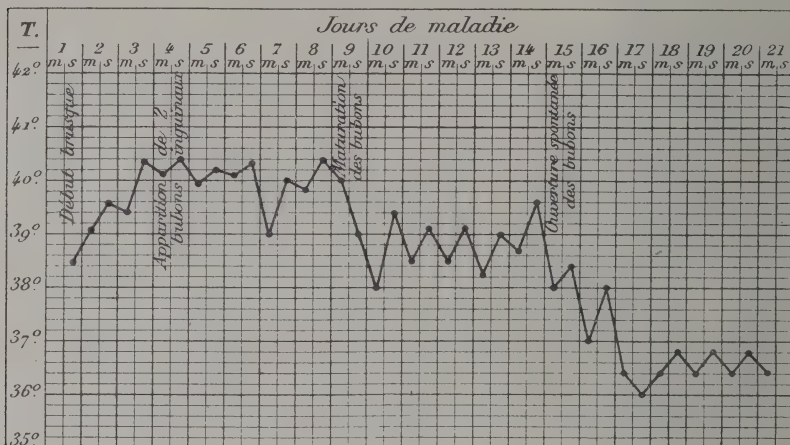 T.
Jours de maladie
1 2 3 4 5 6 7 8 9 10 11 12 13 14 15 16 17 18 19 20 21
m s m s m s m s m s m s m s m s m s m s m s m s m s m s m s m s m s m s m s m s m s
42°
41°
40°
39°
38°
37°
36°
35°
Début brusque
Apparition de 2
bubons inguinaux
Maturation
des bubons
Ouverture spontanée
des bubons